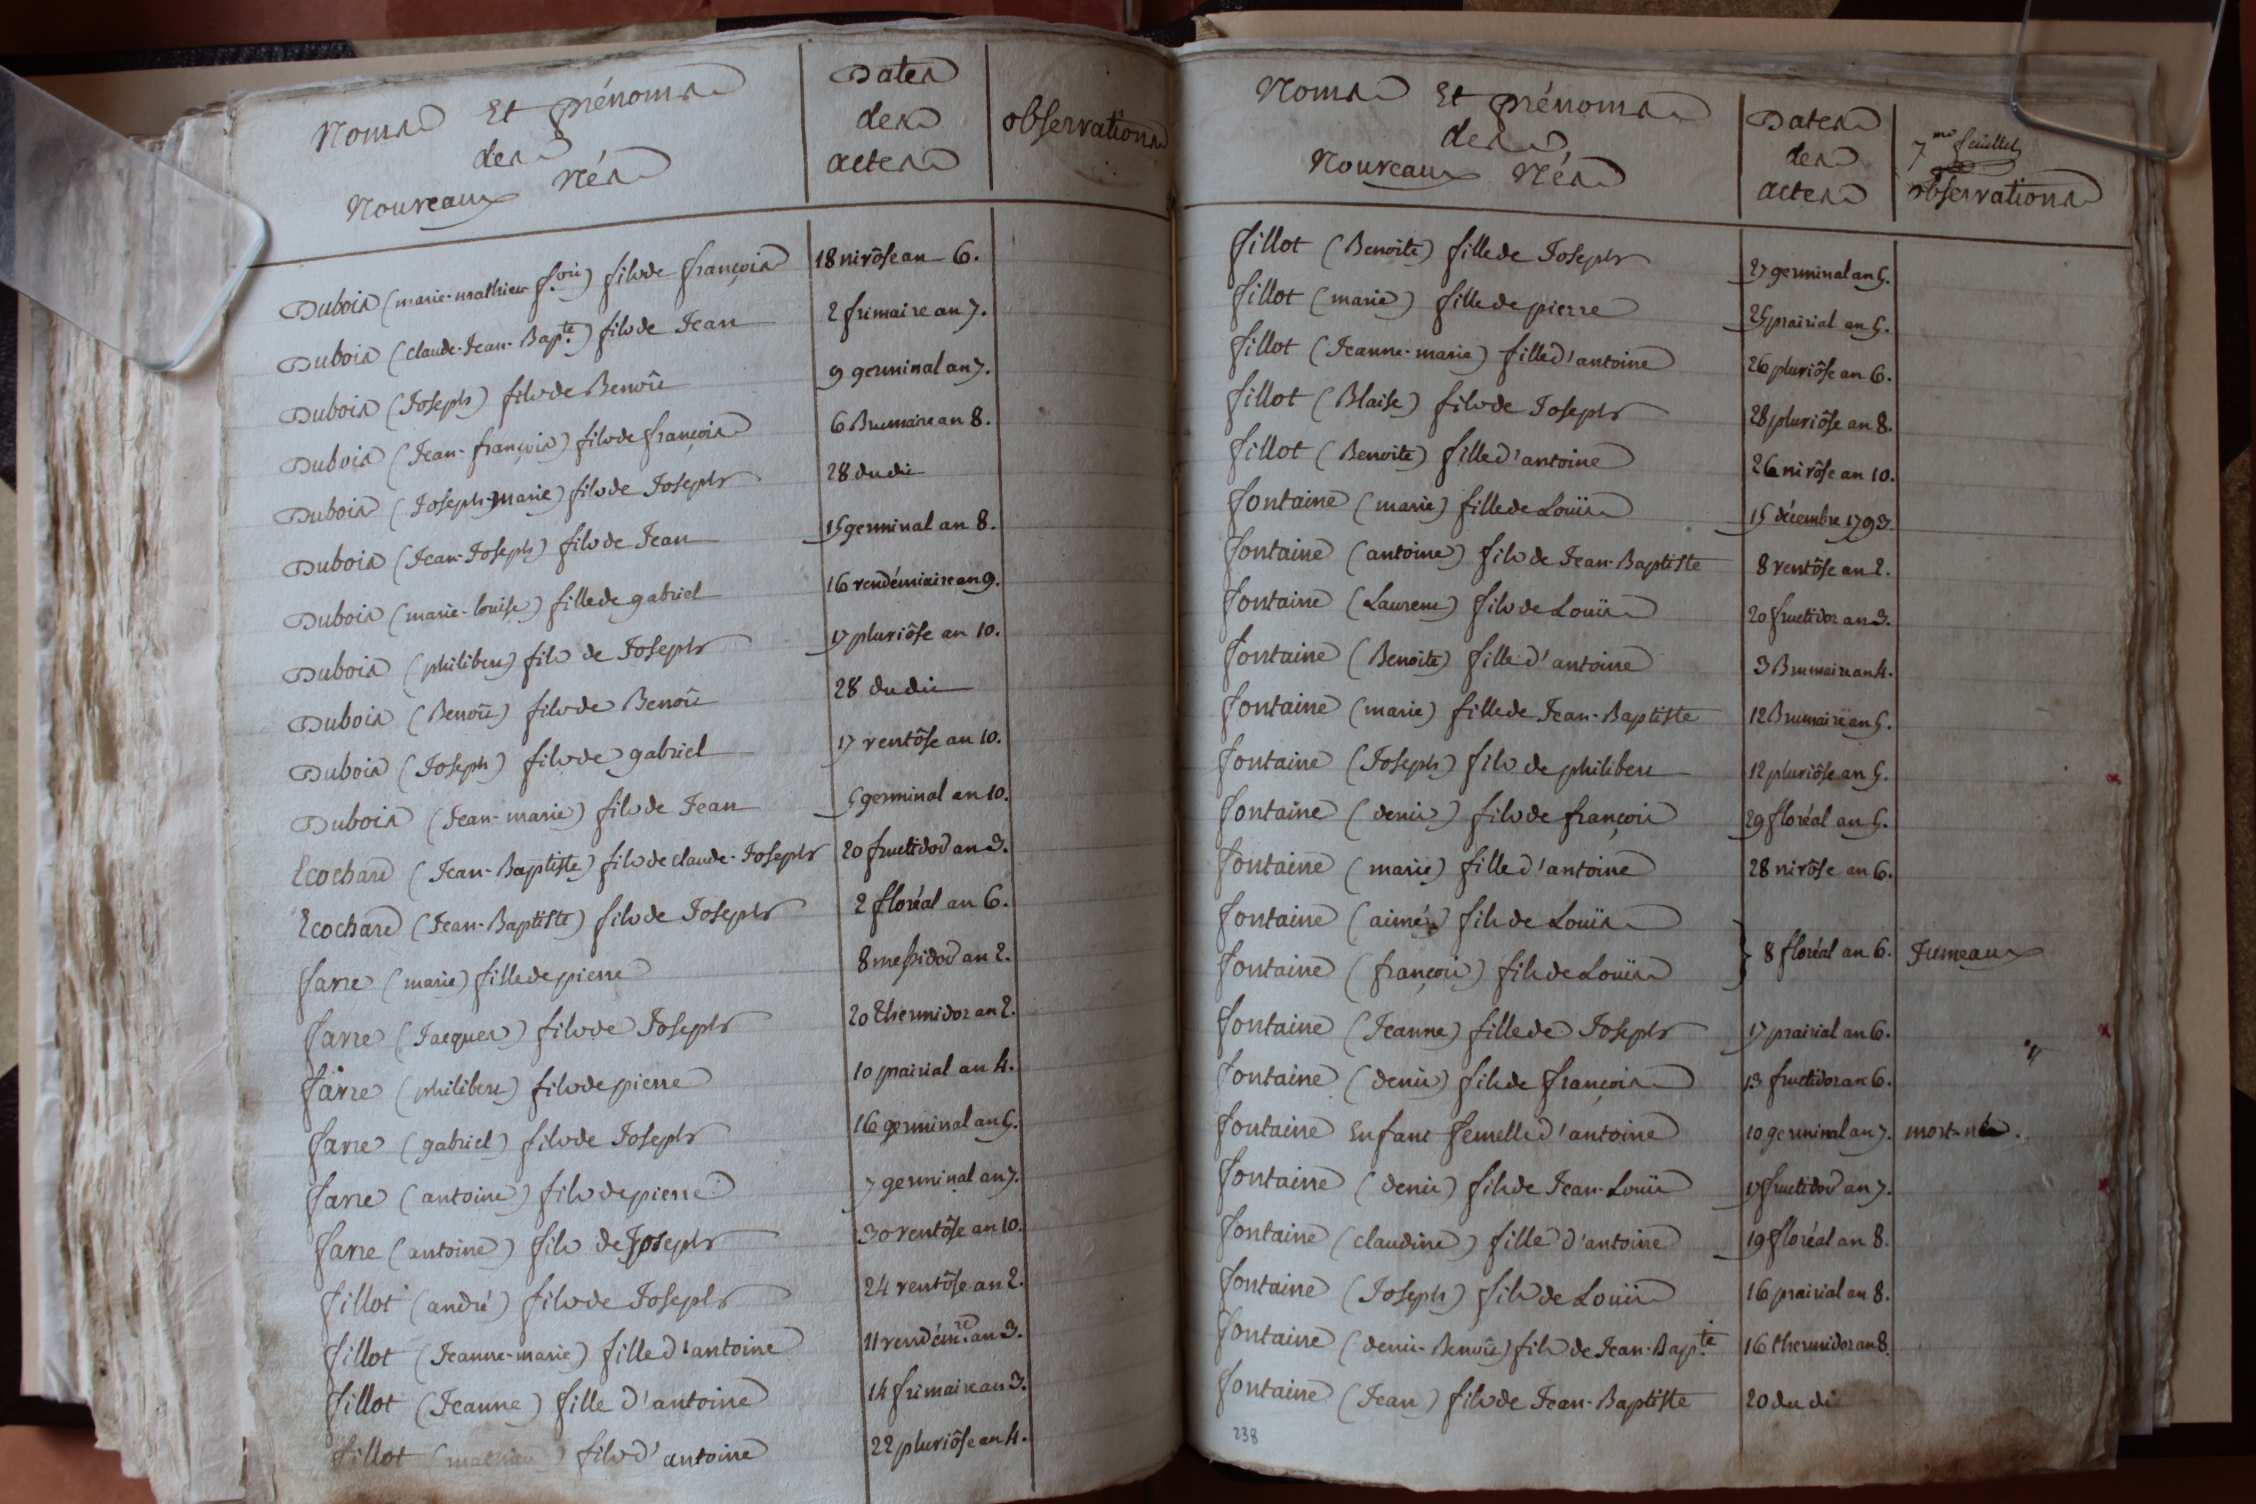 Noms Et prénoms
des
Nouveaux Nés
Dates
des
actes
observations
Dubois (marie-mathieu f.ois) fils de françois 18 nivôse an 6.
Dubois (claude-Jean-Bap.te) fils de Jean 2 frimaire an 7.
Dubois (Joseph) fils de Benoît 9 germinal an 7.
Dubois (Jean-françois) fils de françois 6 Brumaire an 8.
Dubois (Joseph-marie) fils de Joseph 28 du dit
Dubois (Jean-Joseph) fils de Jean 15 germinal an 8.
Dubois (marie-louise) fille de gabriel 16 vendémiaire an 9.
Dubois (philibert) fils de Joseph 17 pluviôse an 10.
Dubois (Benoît) fils de Benoît 28 du dit
Dubois (Joseph) fils de gabriel 17 ventôse an 10.
Dubois (Jean-marie) fils de Jean 5 germinal an 10.
Ecochard (Jean-Baptiste) fils de claude-Joseph 20 fructidor an 3.
Ecochard (Jean-Baptiste) fils de Joseph 2 floréal an 6.
farre (marie) fille de pierre 8 messidor an 2.
farre (Jacques) fils de Joseph 20 thermidor an 2.
farre (philibert) fils de pierre 10 prairial an 4.
farre (gabriel) fils de Joseph 16 germinal an 5.
farre (antoine) fils de pierre 7 germinal an 7.
farre (antoine) fils de Joseph 30 ventôse an 10.
fillot (andré) fils de Joseph 24 ventôse an 2.
fillot (Jeanne-marie) fille d'antoine 11 vendém.re an 3.
fillot (Jeanne) fille d'antoine 14 frimaire an 3.
fillot (mathieu) fils d'antoine 22 pluviôse an 4.
Noms Et prénoms
des
Nouveaux Nés
Dates
des
actes
7.me feuillet
observations
fillot (Benoite) fille de Joseph 27 germinal an 5.
fillot (marie) fille de pierre 25 prairial an 5.
fillot (Jeanne-marie) fille d'antoine 26 pluviôse an 6.
fillot (Blaise) fils de Joseph 28 pluviôse an 8.
fillot (Benoite) fille d'antoine 26 nivôse an 10.
fontaine (marie) fille de Louïs 15 décembre 1793.
fontaine (antoine) fils de Jean-Baptiste 8 ventôse an 2.
fontaine (Laurent) fils de Louïs 20 fructidor an 3.
fontaine (Benoite) fille d'antoine 3 Brumaire an 4.
fontaine (marie) fille de Jean-Baptiste 12 Brumaire an 5.
fontaine (Joseph) fils de philibert 12 pluviôse an 5.
fontaine (denis) fils de françois 29 floréal an 5.
fontaine (marie) fille d'antoine 28 nivôse an 6.
fontaine (aimé) fils de Louïs
fontaine (françois) fils de Louïs } 8 floréal an 6. Jumeaux
fontaine (Jeanne) fille de Joseph 17 prairial an 6.
fontaine (denis) fils de françois 13 fructidor an 6.
fontaine Enfant femelle d'antoine 10 germinal an 7. mort-née.
fontaine (denis) fils de Jean-Louïs 17 fructidor an 7.
fontaine (claudine) fille d'antoine 19 floréal an 8.
fontaine (Joseph) fils de Louïs 16 prairial an 8.
fontaine (denis-Benoît) fils de Jean-Bap.te 16 thermidor an 8.
fontaine (Jean) fils de Jean-Baptiste 20 du dit
238